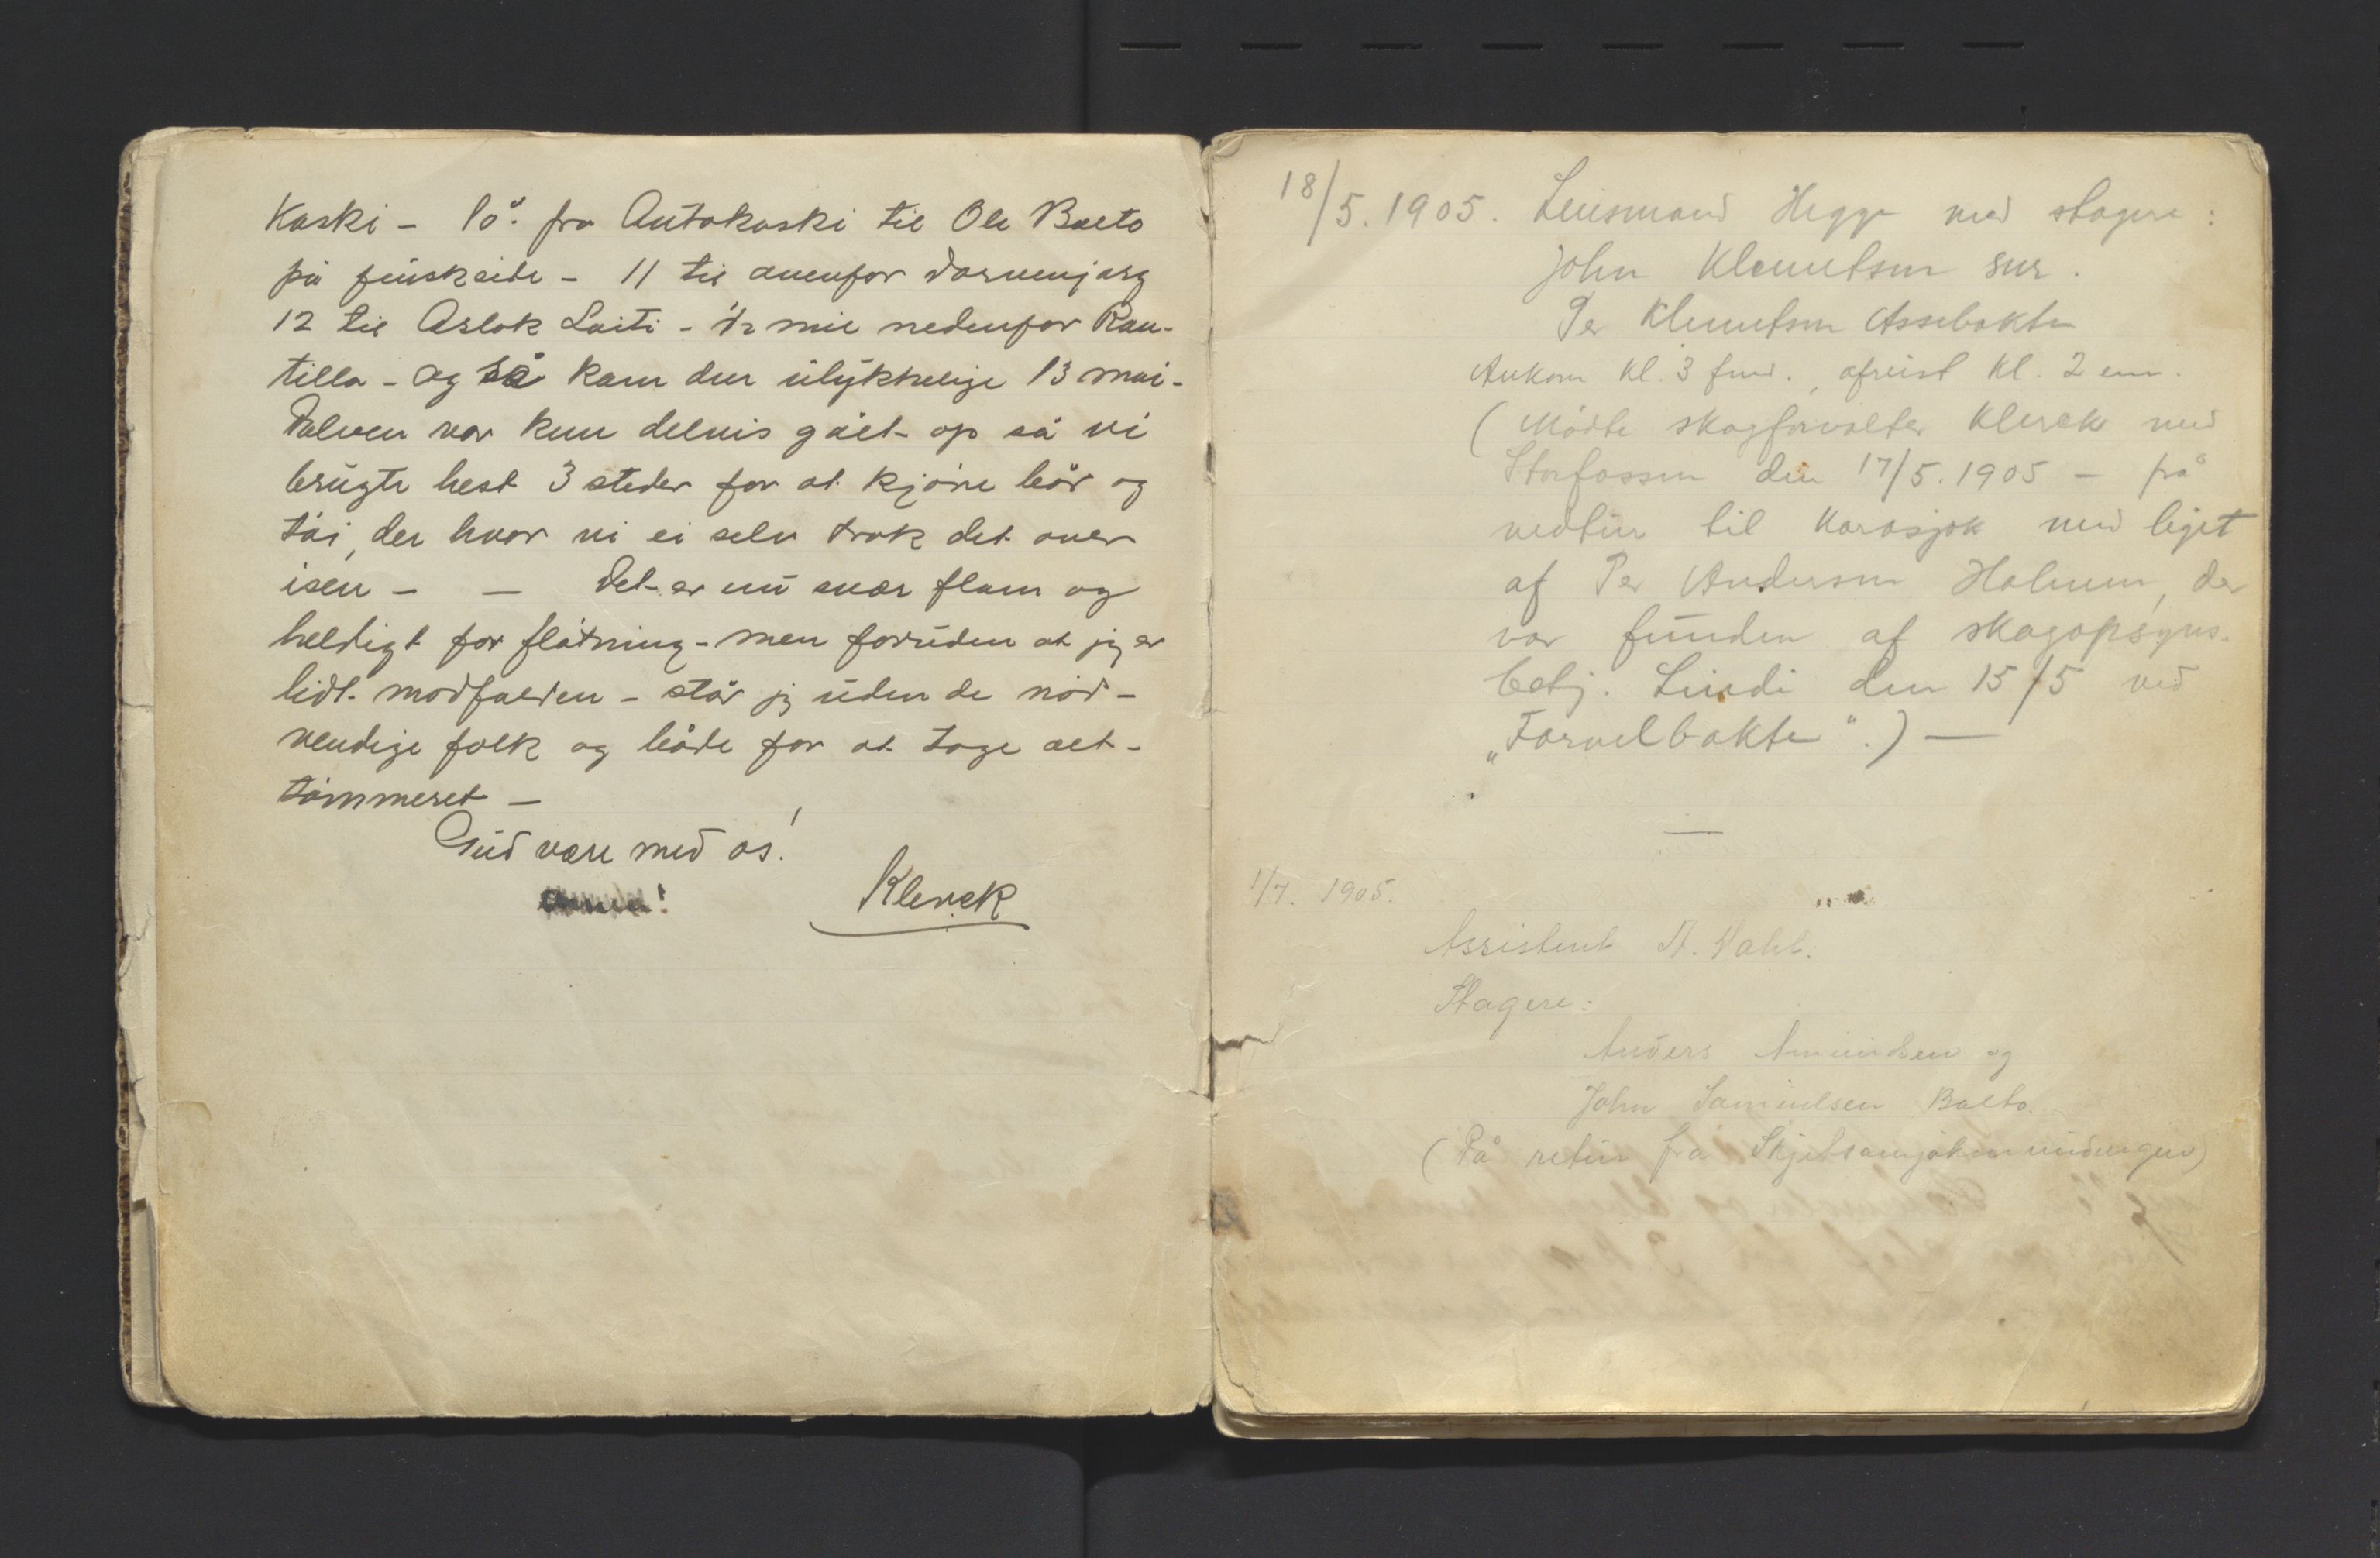 Kaski - 10de fra Autokaski til Ole Balto
på finskside - 11 til ovenfor Dorvenjarg
12 til Aslak Laiti - 1/2 mil nedenfor Rau-
tilla - og så kom den ulykkelige 13 mai -
Dalven var kun delvis gået op så vi
brugte hest 3 steder for at kjøre bår og
tøi, der hvor vi ei selv trak det over
isen - - Det er nu svær flom og
heldigt for fløtning - men foruden at jeg er
lidt modfalden - står jeg uden de nød-
vendige folk og både for at tage alt -
tømmeret -
Gud være med os!
amen!
Klerck
18/5. 1905. Lensmand Hegge med stagere:
John Klemetsen sur.
Per Klemetsen Assebakte
Ankom kl. 3 fmd., afreist kl. 2 em.
(Mødte skogforvalter Klerck ved
Storfossen den 17/5. 1905 - på
nedtur til Karasjok med liget
af Per Andersen Halonen, der
var funden af skogopsyns-
betj. Lindi den 15/5 ved
„Farvelbakte“.) -
1/7. 1905.
Assistent A. Wahl.
Stagere:
Anders Amundsen og
John Samuelsen Balto.
(På retur fra